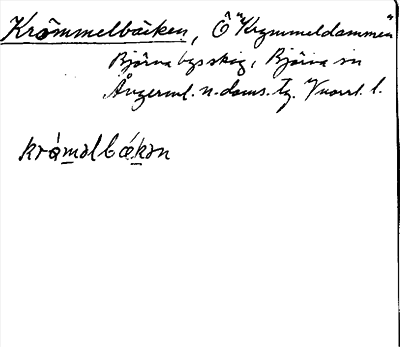 Krömmelbäcken, Ô "Krymmeldammen"
Björna bysskog, Björna sn
Ångerml. n. doms. tg. V
kröməlbǽkən